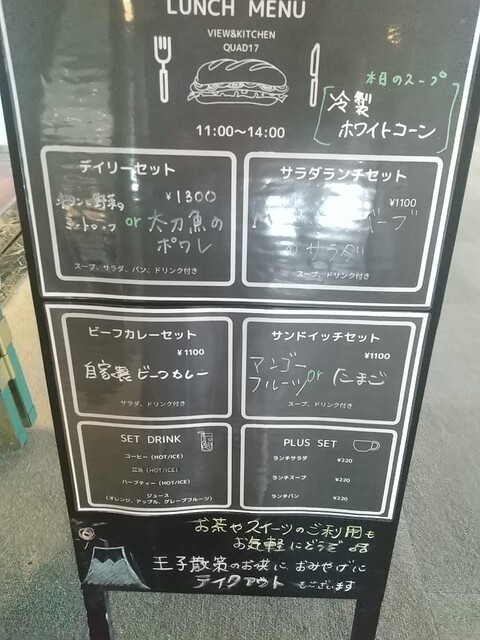 LUNCH MENU
VIEW&KITCHEN
QUAD17
11:00〜14:00
本日のスープ
冷製
ホワイトコーン
デイリーセット
¥1300
or 太刀魚の
ポワレ
スープ、サラダ、パン、ドリンク付き
サラダランチセット
¥1100
のサラダ
スープ、ドリンク付き
ビーフカレーセット
¥1100
自家製ビーフカレー
サラダ、ドリンク付き
サンドイッチセット
¥1100
マンゴー
フルーツ or たまご
スープ、ドリンク付き
SET DRINK
コーヒー (HOT/ICE)
紅茶 (HOT/ICE)
ハーブティー (HOT/ICE)
ジュース
(オレンジ、アップル、グレープフルーツ)
PLUS SET
ランチサラダ ¥220
ランチスープ ¥220
ランチパン ¥220
お茶やスイーツのご利用も
お気軽にどうぞ
王子散策のお供に、おみやげに
テイクアウトもございます